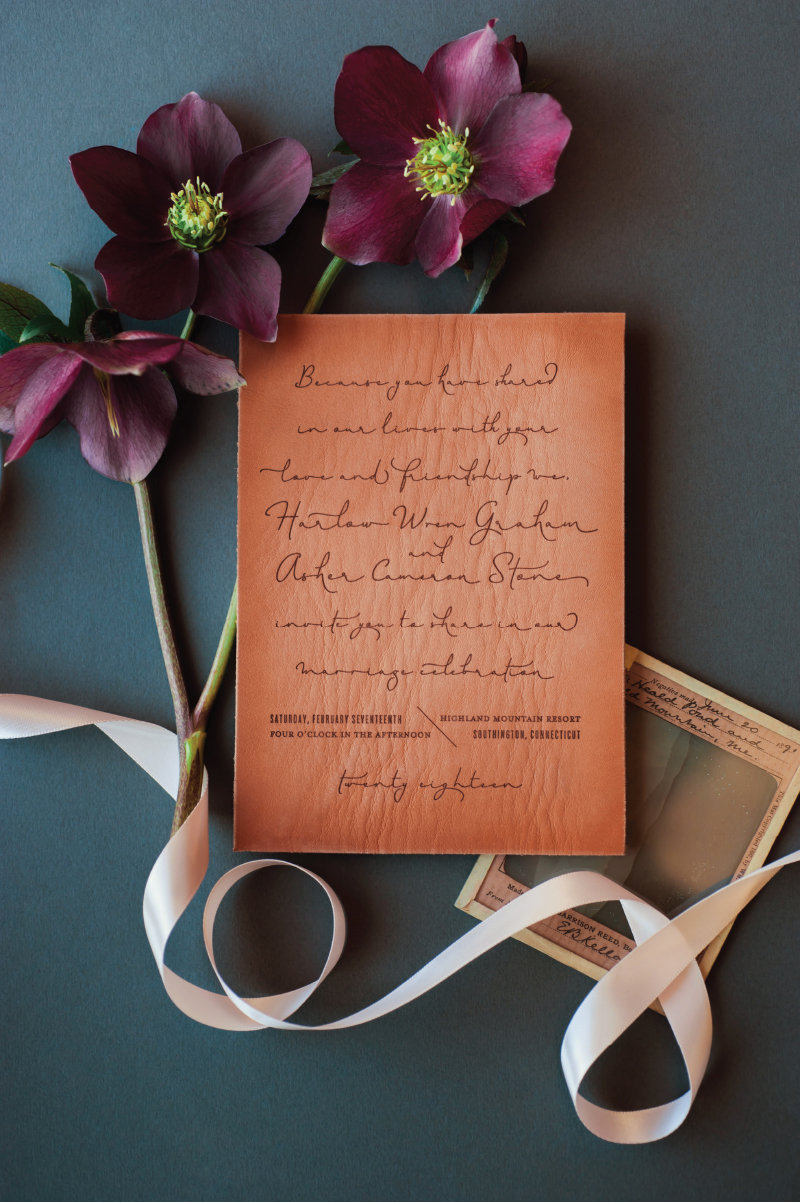 Because you have shared
in our lives with your
love and friendship we,
Harlow Wren Graham
and
Asher Cameron Stone
invite you to share in our
marriage celebration
SATURDAY, FEBRUARY SEVENTEENTH
FOUR O'CLOCK IN THE AFTERNOON
HIGHLAND MOUNTAIN RESORT
SOUTHINGTON, CONNECTICUT
twenty eighteen
Negative made June 20 189
Heald Pond and
Mountain, Me.
Made
From
HARRISON REED,